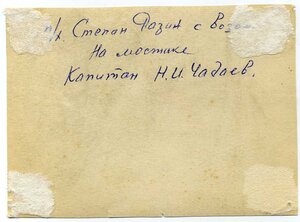 п/х. Степан Разин с Возом
На мостике
Капитан Н.И. Чадаев.